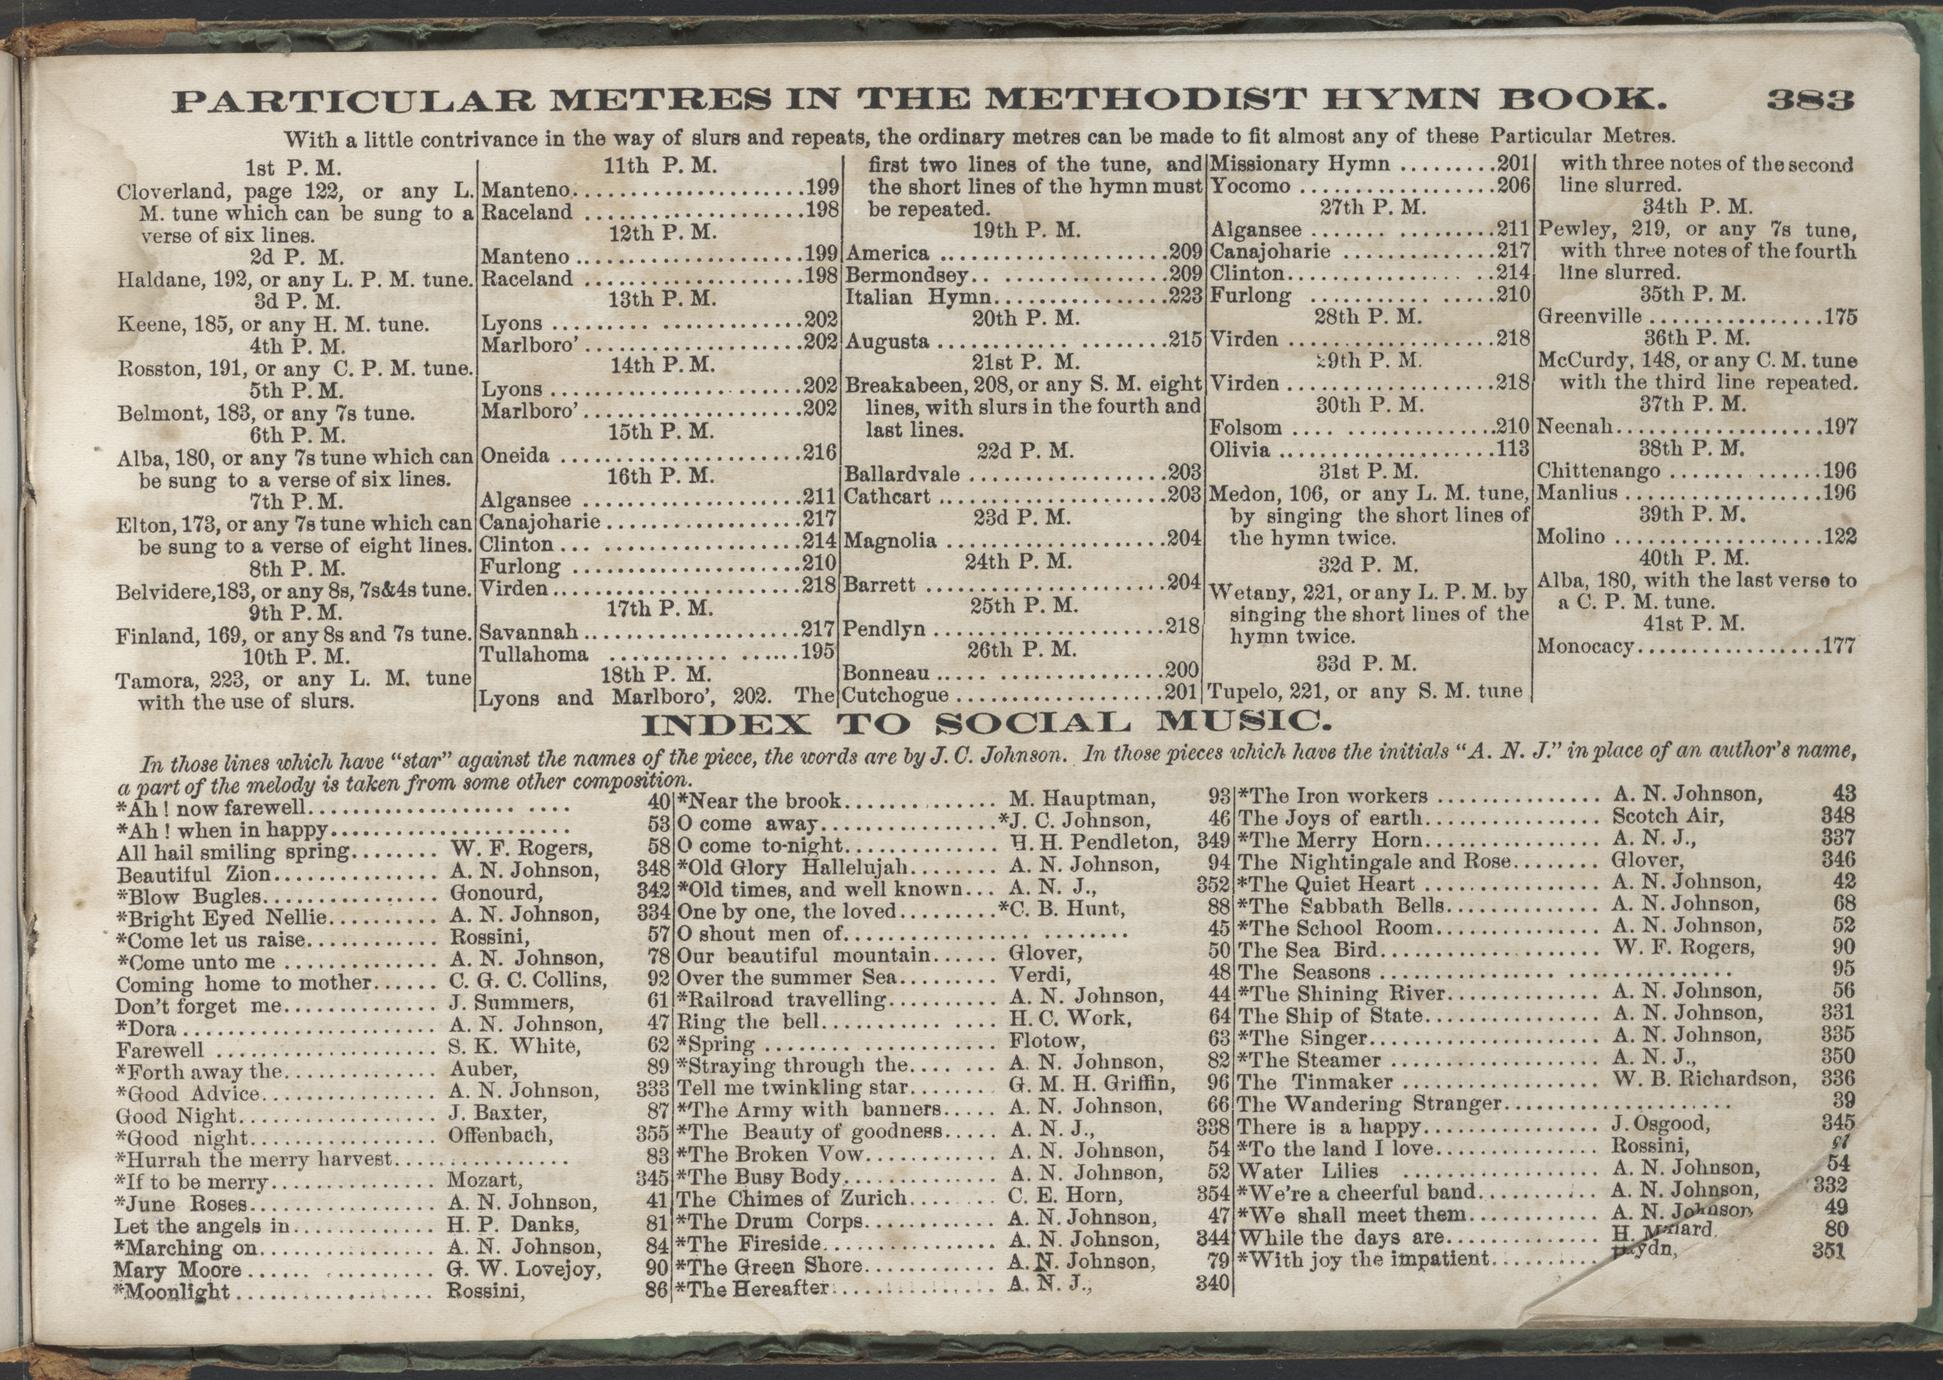 PARTICULAR METRES IN THE METHODIST HYMN BOOK. 383
With a little contrivance in the way of slurs and repeats, the ordinary metres can be made to fit almost any of these Particular Metres.
1st P. M.
Cloverland, page 122, or any L.
M. tune which can be sung to a
verse of six lines.
2d P. M.
Haldane, 192, or any L. P. M. tune.
3d P. M.
Keene, 185, or any H. M. tune.
4th P. M.
Rosston, 191, or any C. P. M. tune.
5th P. M.
Belmont, 183, or any 7s tune.
6th P. M.
Alba, 180, or any 7s tune which can
be sung to a verse of six lines.
7th P. M.
Elton, 173, or any 7s tune which can
be sung to a verse of eight lines.
8th P. M.
Belvidere, 183, or any 8s, 7s&4s tune.
9th P. M.
Finland, 169, or any 8s and 7s tune.
10th P. M.
Tamora, 223, or any L. M. tune
with the use of slurs.
11th P. M.
Manteno..........................199
Raceland ........................198
12th P. M.
Manteno ........................199
Raceland ........................198
13th P. M.
Lyons ..........................202
Marlboro' .......................202
14th P. M.
Lyons ..........................202
Marlboro' .......................202
15th P. M.
Oneida ..........................216
16th P. M.
Algansee ........................211
Canajoharie......................217
Clinton ... .....................214
Furlong .........................210
Virden...........................218
17th P. M.
Savannah.........................217
Tullahoma .......................195
18th P. M.
Lyons and Marlboro', 202. The
first two lines of the tune, and
the short lines of the hymn must
be repeated.
19th P. M.
America .........................209
Bermondsey.. ....................209
Italian Hymn.....................223
20th P. M.
Augusta .........................215
21st P. M.
Breakabeen, 208, or any S. M. eight
lines, with slurs in the fourth and
last lines.
22d P. M.
Ballardvale .....................203
Cathcart ........................203
23d P. M.
Magnolia ........................204
24th P. M.
Barrett .........................204
25th P. M.
Pendlyn .........................218
26th P. M.
Bonneau ..... ...................200
Cutchogue .......................201
Missionary Hymn .........201
Yocomo ....................206
27th P. M.
Algansee ....... .........211
Canajoharie ..............217
Clinton...................214
Furlong .......... ......210
28th P. M.
Virden ....................218
29th P. M.
Virden ....................218
30th P. M.
Folsom .... ..............210
Olivia ....................113
31st P. M.
Medon, 106, or any L. M. tune,
by singing the short lines of
the hymn twice.
32d P. M.
Wetany, 221, or any L. P. M. by
singing the short lines of the
hymn twice.
33d P. M.
Tupelo, 221, or any S. M. tune
with three notes of the second
line slurred.
34th P. M.
Pewley, 219, or any 7s tune,
with three notes of the fourth
line slurred.
35th P. M.
Greenville ................175
36th P. M.
McCurdy, 148, or any C. M. tune
with the third line repeated.
37th P. M.
Neenah....................197
38th P. M.
Chittenango ..............196
Manlius ...................196
39th P. M.
Molino ....................122
40th P. M.
Alba, 180, with the last verse to
a C. P. M. tune.
41st P. M.
Monocacy.................177
INDEX TO SOCIAL MUSIC.
In those lines which have "star" against the names of the piece, the words are by J. C. Johnson. In those pieces which have the initials "A. N. J." in place of an author's name,
a part of the melody is taken from some other composition.
*Ah! now farewell.................... .... 40
*Ah! when in happy........................ 53
All hail smiling spring........ W. F. Rogers, 58
Beautiful Zion............... A. N. Johnson, 348
*Blow Bugles................. Gonourd, 342
*Bright Eyed Nellie.......... A. N. Johnson, 334
*Come let us raise............ Rossini, 57
*Come unto me .............. A. N. Johnson, 78
Coming home to mother...... C. G. C. Collins, 92
Don't forget me.............. J. Summers, 61
*Dora ....................... A. N. Johnson, 47
Farewell .................... S. K. White, 62
*Forth away the.............. Auber, 89
*Good Advice................ A. N. Johnson, 333
Good Night.................. J. Baxter, 87
*Good night.................. Offenbach, 355
*Hurrah the merry harvest.................. 83
*If to be merry............... Mozart, 345
*June Roses.................. A. N. Johnson, 41
Let the angels in............. H. P. Danks, 81
*Marching on................. A. N. Johnson, 84
Mary Moore ................. G. W. Lovejoy, 90
*Moonlight .................. Rossini, 86
*Near the brook.............. M. Hauptman, 93
O come away................*J. C. Johnson, 46
O come to-night.............. H. H. Pendleton, 349
*Old Glory Hallelujah........ A. N. Johnson, 94
*Old times, and well known... A. N. J., 352
One by one, the loved.........*C. B. Hunt, 88
O shout men of................. ........ 45
Our beautiful mountain...... Glover, 50
Over the summer Sea......... Verdi, 48
*Railroad travelling.......... A. N. Johnson, 44
Ring the bell............ .... H. C. Work, 64
*Spring ...................... Flotow, 63
*Straying through the........ A. N. Johnson, 82
Tell me twinkling star........ G. M. H. Griffin, 96
*The Army with banners..... A. N. Johnson, 66
*The Beauty of goodness..... A. N. J., 338
*The Broken Vow............ A. N. Johnson, 54
*The Busy Body.............. A. N. Johnson, 52
The Chimes of Zurich........ C. E. Horn, 354
*The Drum Corps............ A. N. Johnson, 47
*The Fireside................ A. N. Johnson, 344
*The Green Shore............ A. N. Johnson, 79
*The Hereafter............... A. N. J., 340
*The Iron workers ............... A. N. Johnson, 43
The Joys of earth................ Scotch Air, 348
*The Merry Horn................ A. N. J., 337
The Nightingale and Rose........ Glover, 346
*The Quiet Heart ................ A. N. Johnson, 42
*The Sabbath Bells............... A. N. Johnson, 68
*The School Room............... A. N. Johnson, 52
The Sea Bird.................... W. F. Rogers, 90
The Seasons ................................ 95
*The Shining River.............. A. N. Johnson, 56
The Ship of State................ A. N. Johnson, 331
*The Singer...................... A. N. Johnson, 335
*The Steamer ................... A. N. J., 350
The Tinmaker ................... W. B. Richardson, 336
The Wandering Stranger..................... 39
There is a happy................. J. Osgood, 345
*To the land I love............... Rossini,
Water Lilies ................. A. N. Johnson, 54
*We're a cheerful band........... A. N. Johnson, 332
*We shall meet them............. A. N. Johnson 49
While the days are............... H. 80
*With joy the impatient........... 351